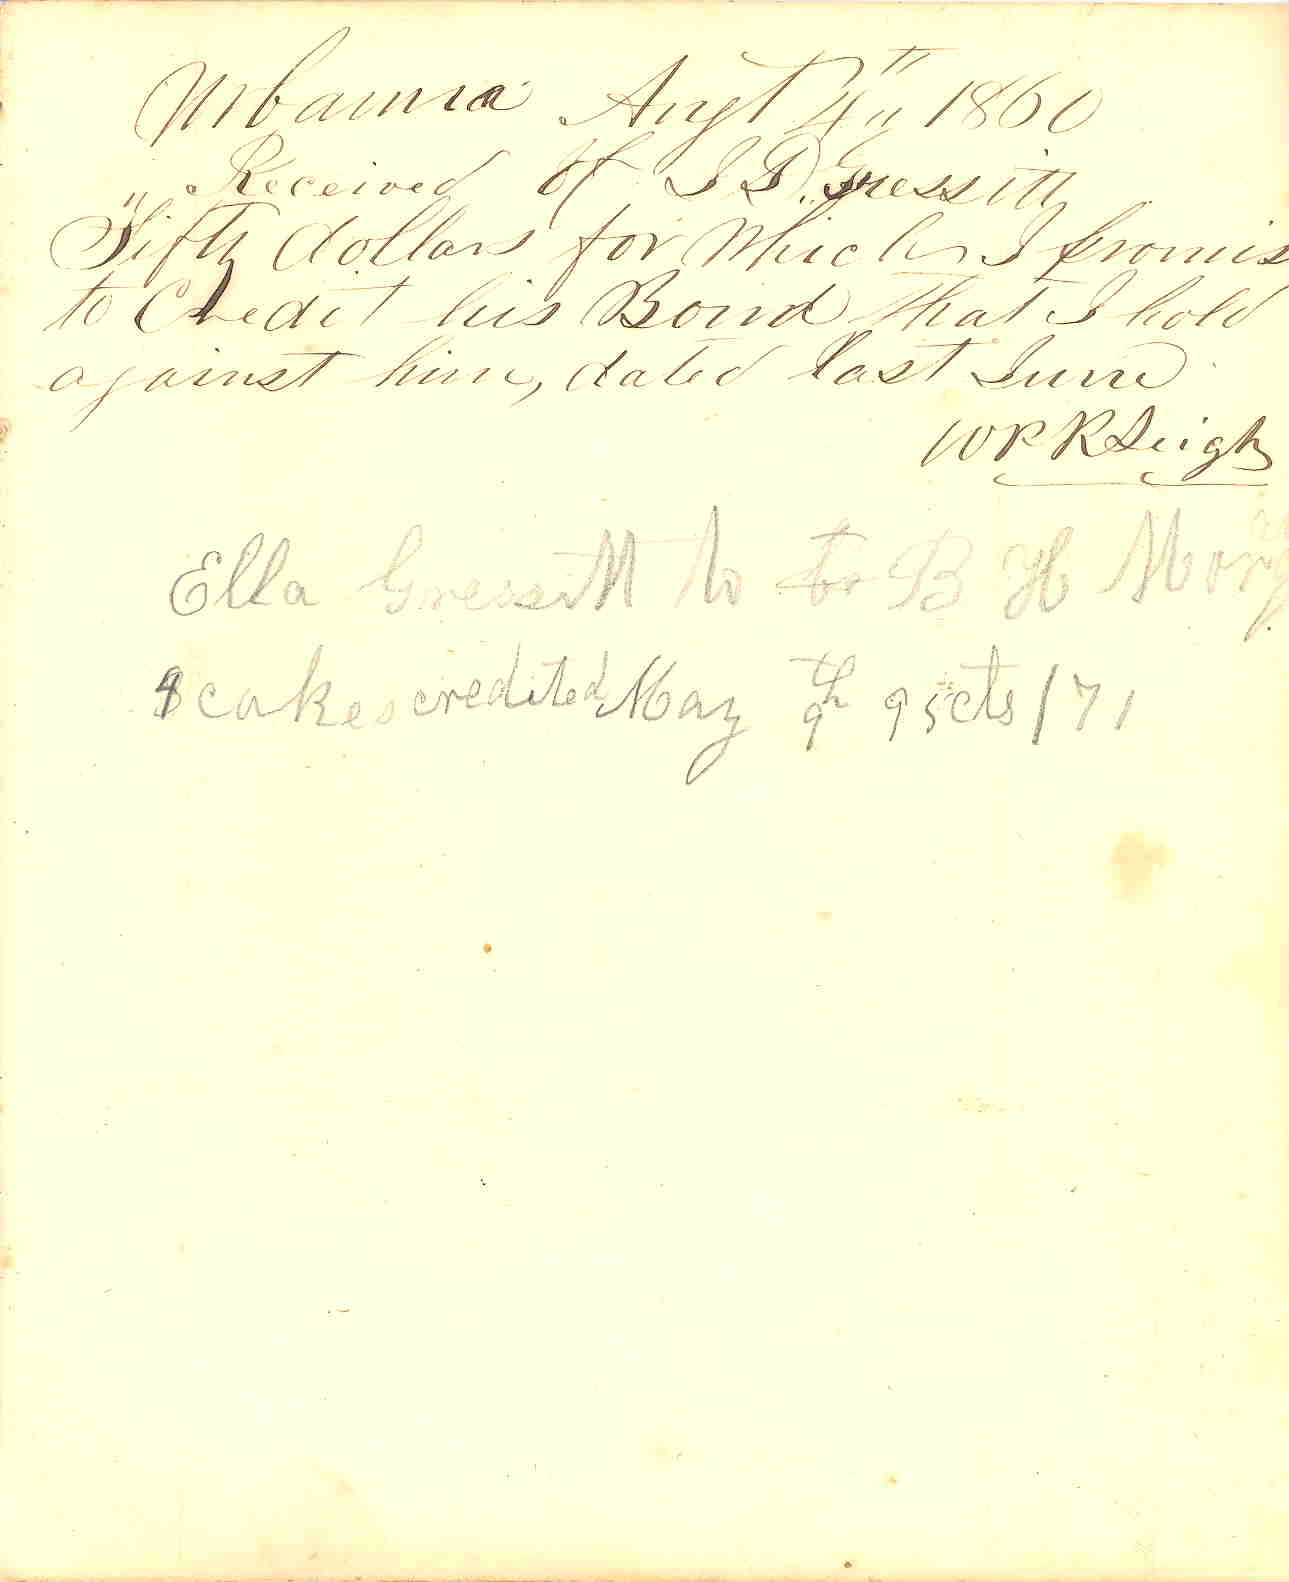 Urbanna Augt 4th 1860
Received of J D. Gressitt
Fifty dollars for Which I promis
to Credit his Bond that I hold
against him, dated last June
W R Leigh
Ella Gressitt to to B H Morg
cakes credited May 9th 95cts /71